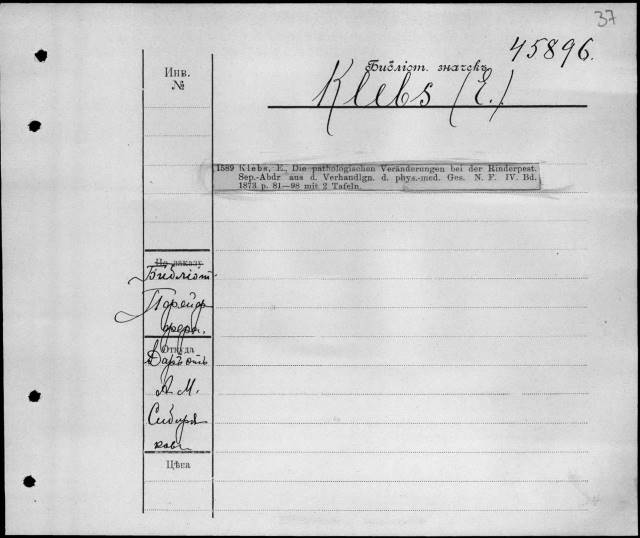 37
45896.
Библіот. значекъ
Klebs (E.)
Инв.
№
1589 Klebs, E., Die pathologischen Veränderungen bei der Rinderpest.
Sep.-Abdr aus d. Verhandlgn. d. phys.-med. Ges. N. F. IV. Bd.
1873 p. 81—98 mit 2 Tafeln.
По заказу
Библіот.
Пфейф
фера.
Откуда
Даръ отъ
А. М.
Сибиря
кова
Цѣна